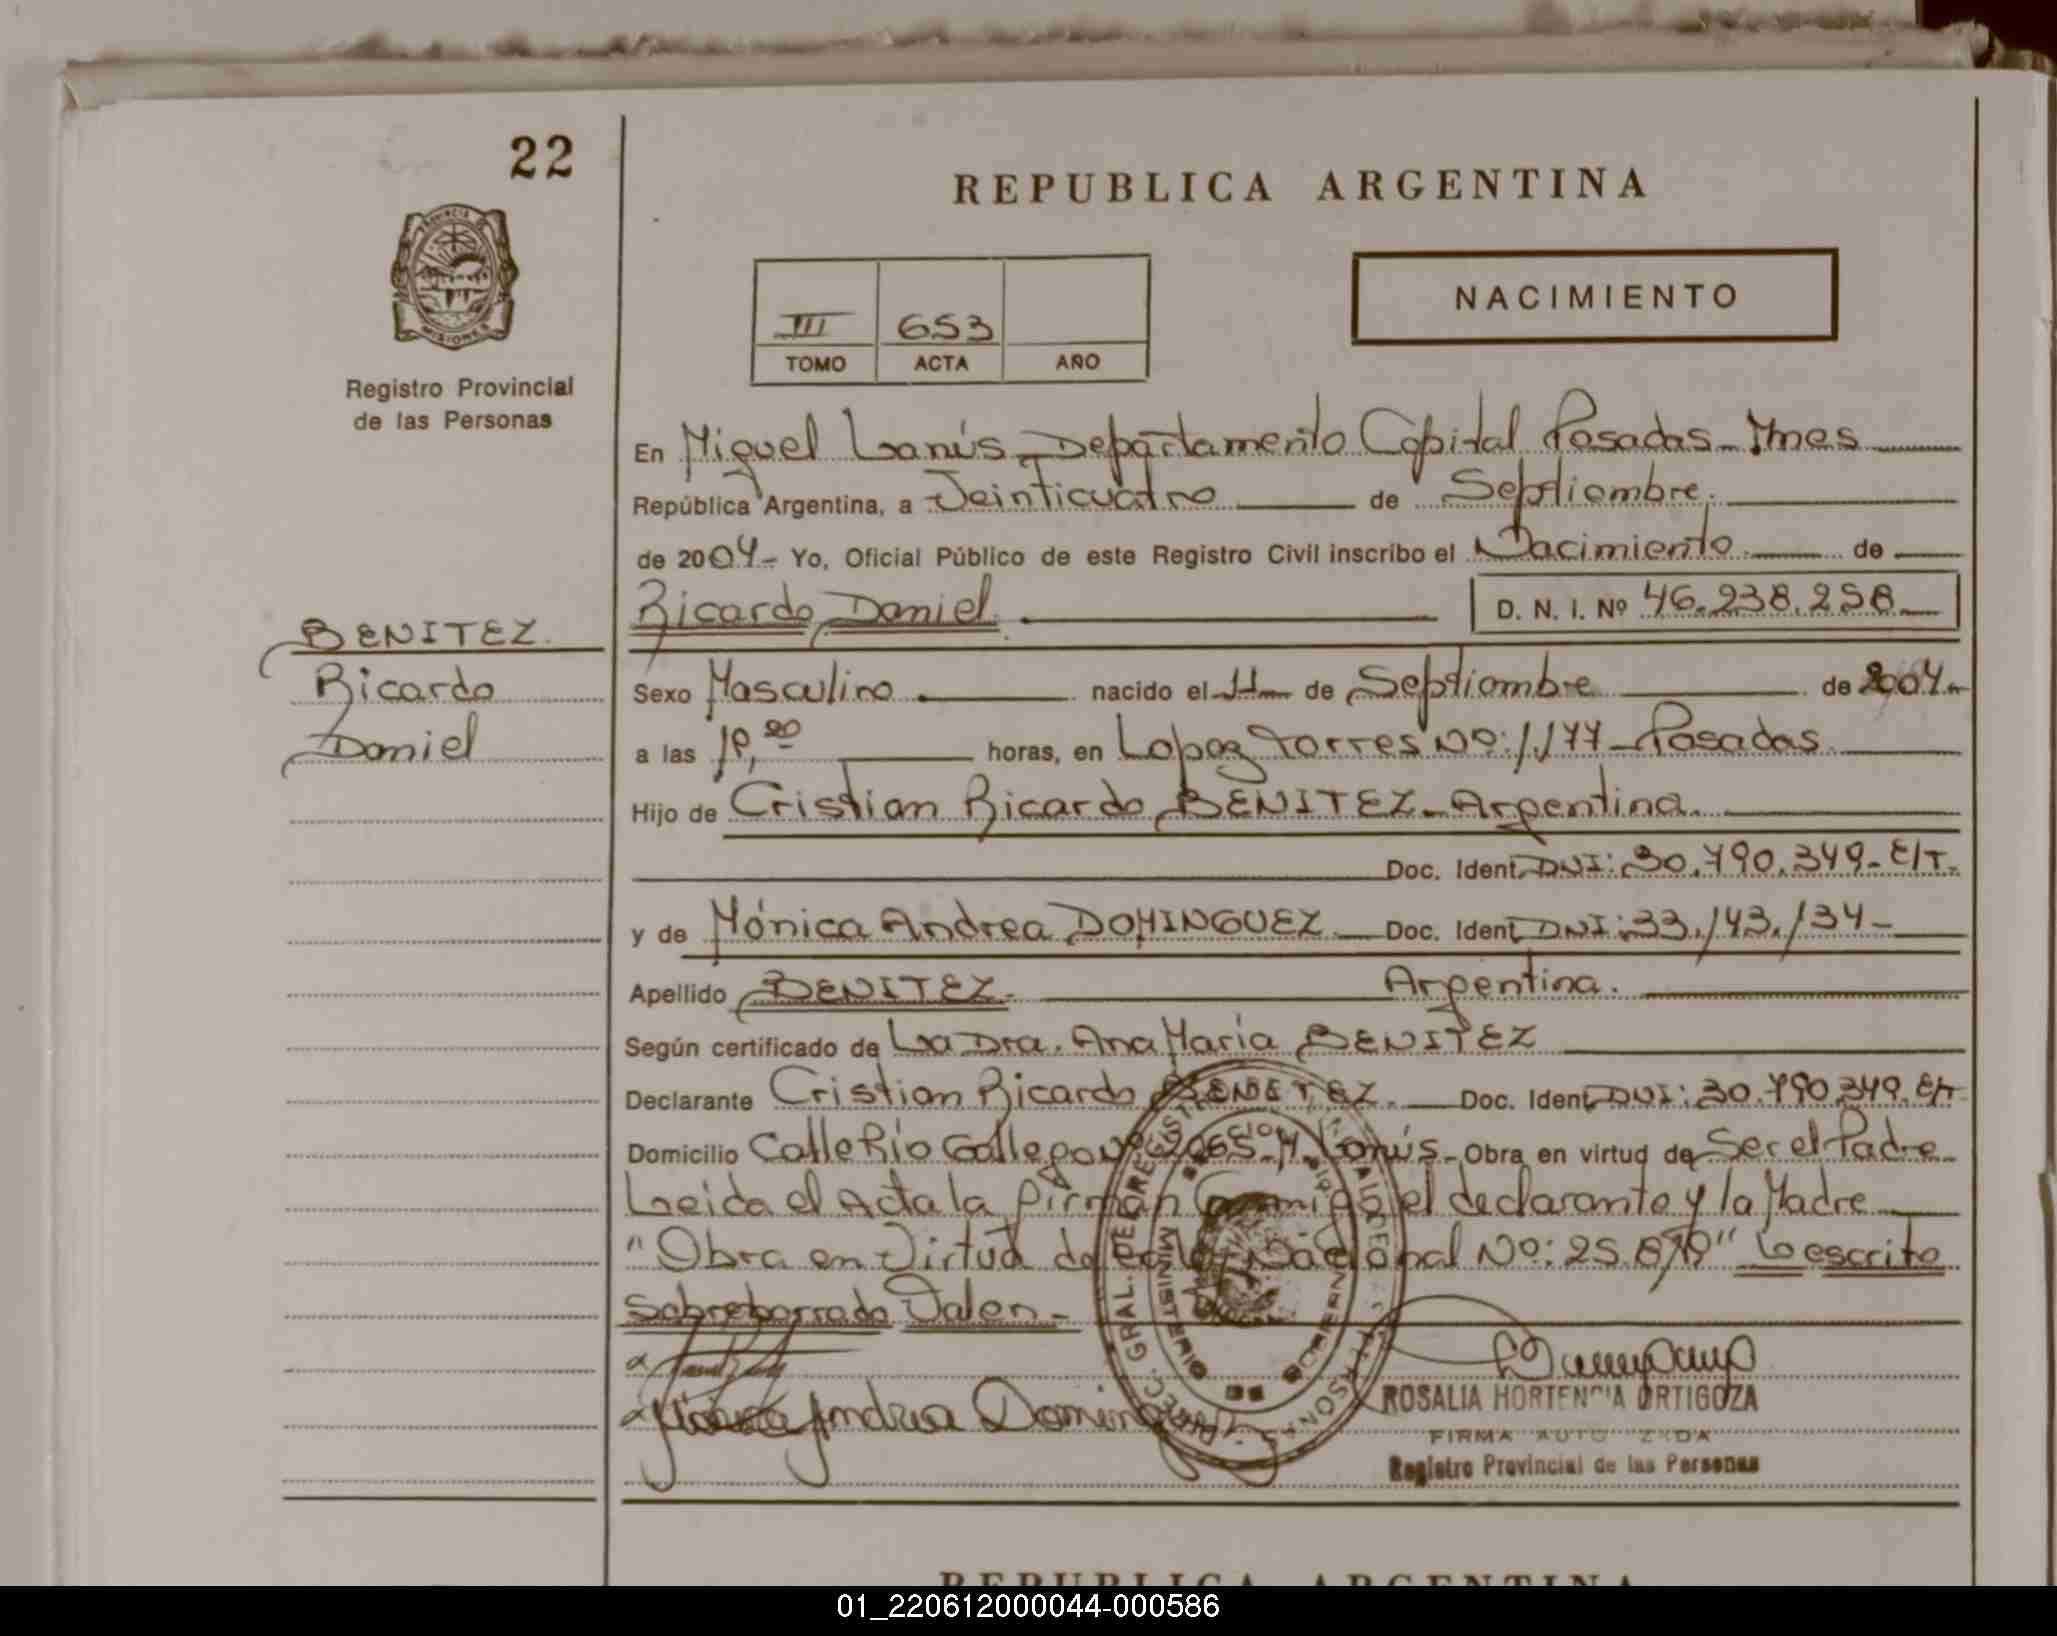 22
REPUBLICA ARGENTINA
PROVINCIA DE
MISIONES
Registro Provincial
de las Personas
III 653
TOMO ACTA AÑO
NACIMIENTO
En Miguel Lanús - Departamento Capital Posadas - Mnes
República Argentina, a Veinticuatro de Septiembre.
de 2004 - Yo, Oficial Público de este Registro Civil inscribo el Nacimiento de
Ricardo Daniel. D. N. I. Nº 46.238.258
BENITEZ.
Ricardo
Daniel
Sexo Masculino nacido el 11 de Septiembre de 2004 -
a las horas, en Lopez Torres Nº: 1177 - Posadas
Hijo de Cristian Ricardo BENITEZ - Argentina.
Doc. Ident. DNI: 30.790.349 - E/T.
y de Mónica Andrea DOMINGUEZ. Doc. Ident. DNI: 33.143.134 -
Apellido BENITEZ. Argentina.
Según certificado de La Dra. Ana María BENITEZ
Declarante Cristian Ricardo BENITEZ. Doc. Ident. DNI: 30.790.349. E/T
Domicilio Calle Río Gallego Nº 2065 - M. Lanús - Obra en virtud de Ser el Padre
Leida el Acta la firman Conmigo el declarante y la Madre
"Obra en Virtud de la Ley Nacional Nº: 25.819" Lo escrito
Sobreborrado Valen -
Andrea Doming
ROSALIA HORTENCIA ORTIGOZA
FIRMA AUTORIZADA
Registro Provincial de las Personas
REPUBLICA ARGENTINA
01_220612000044-000586